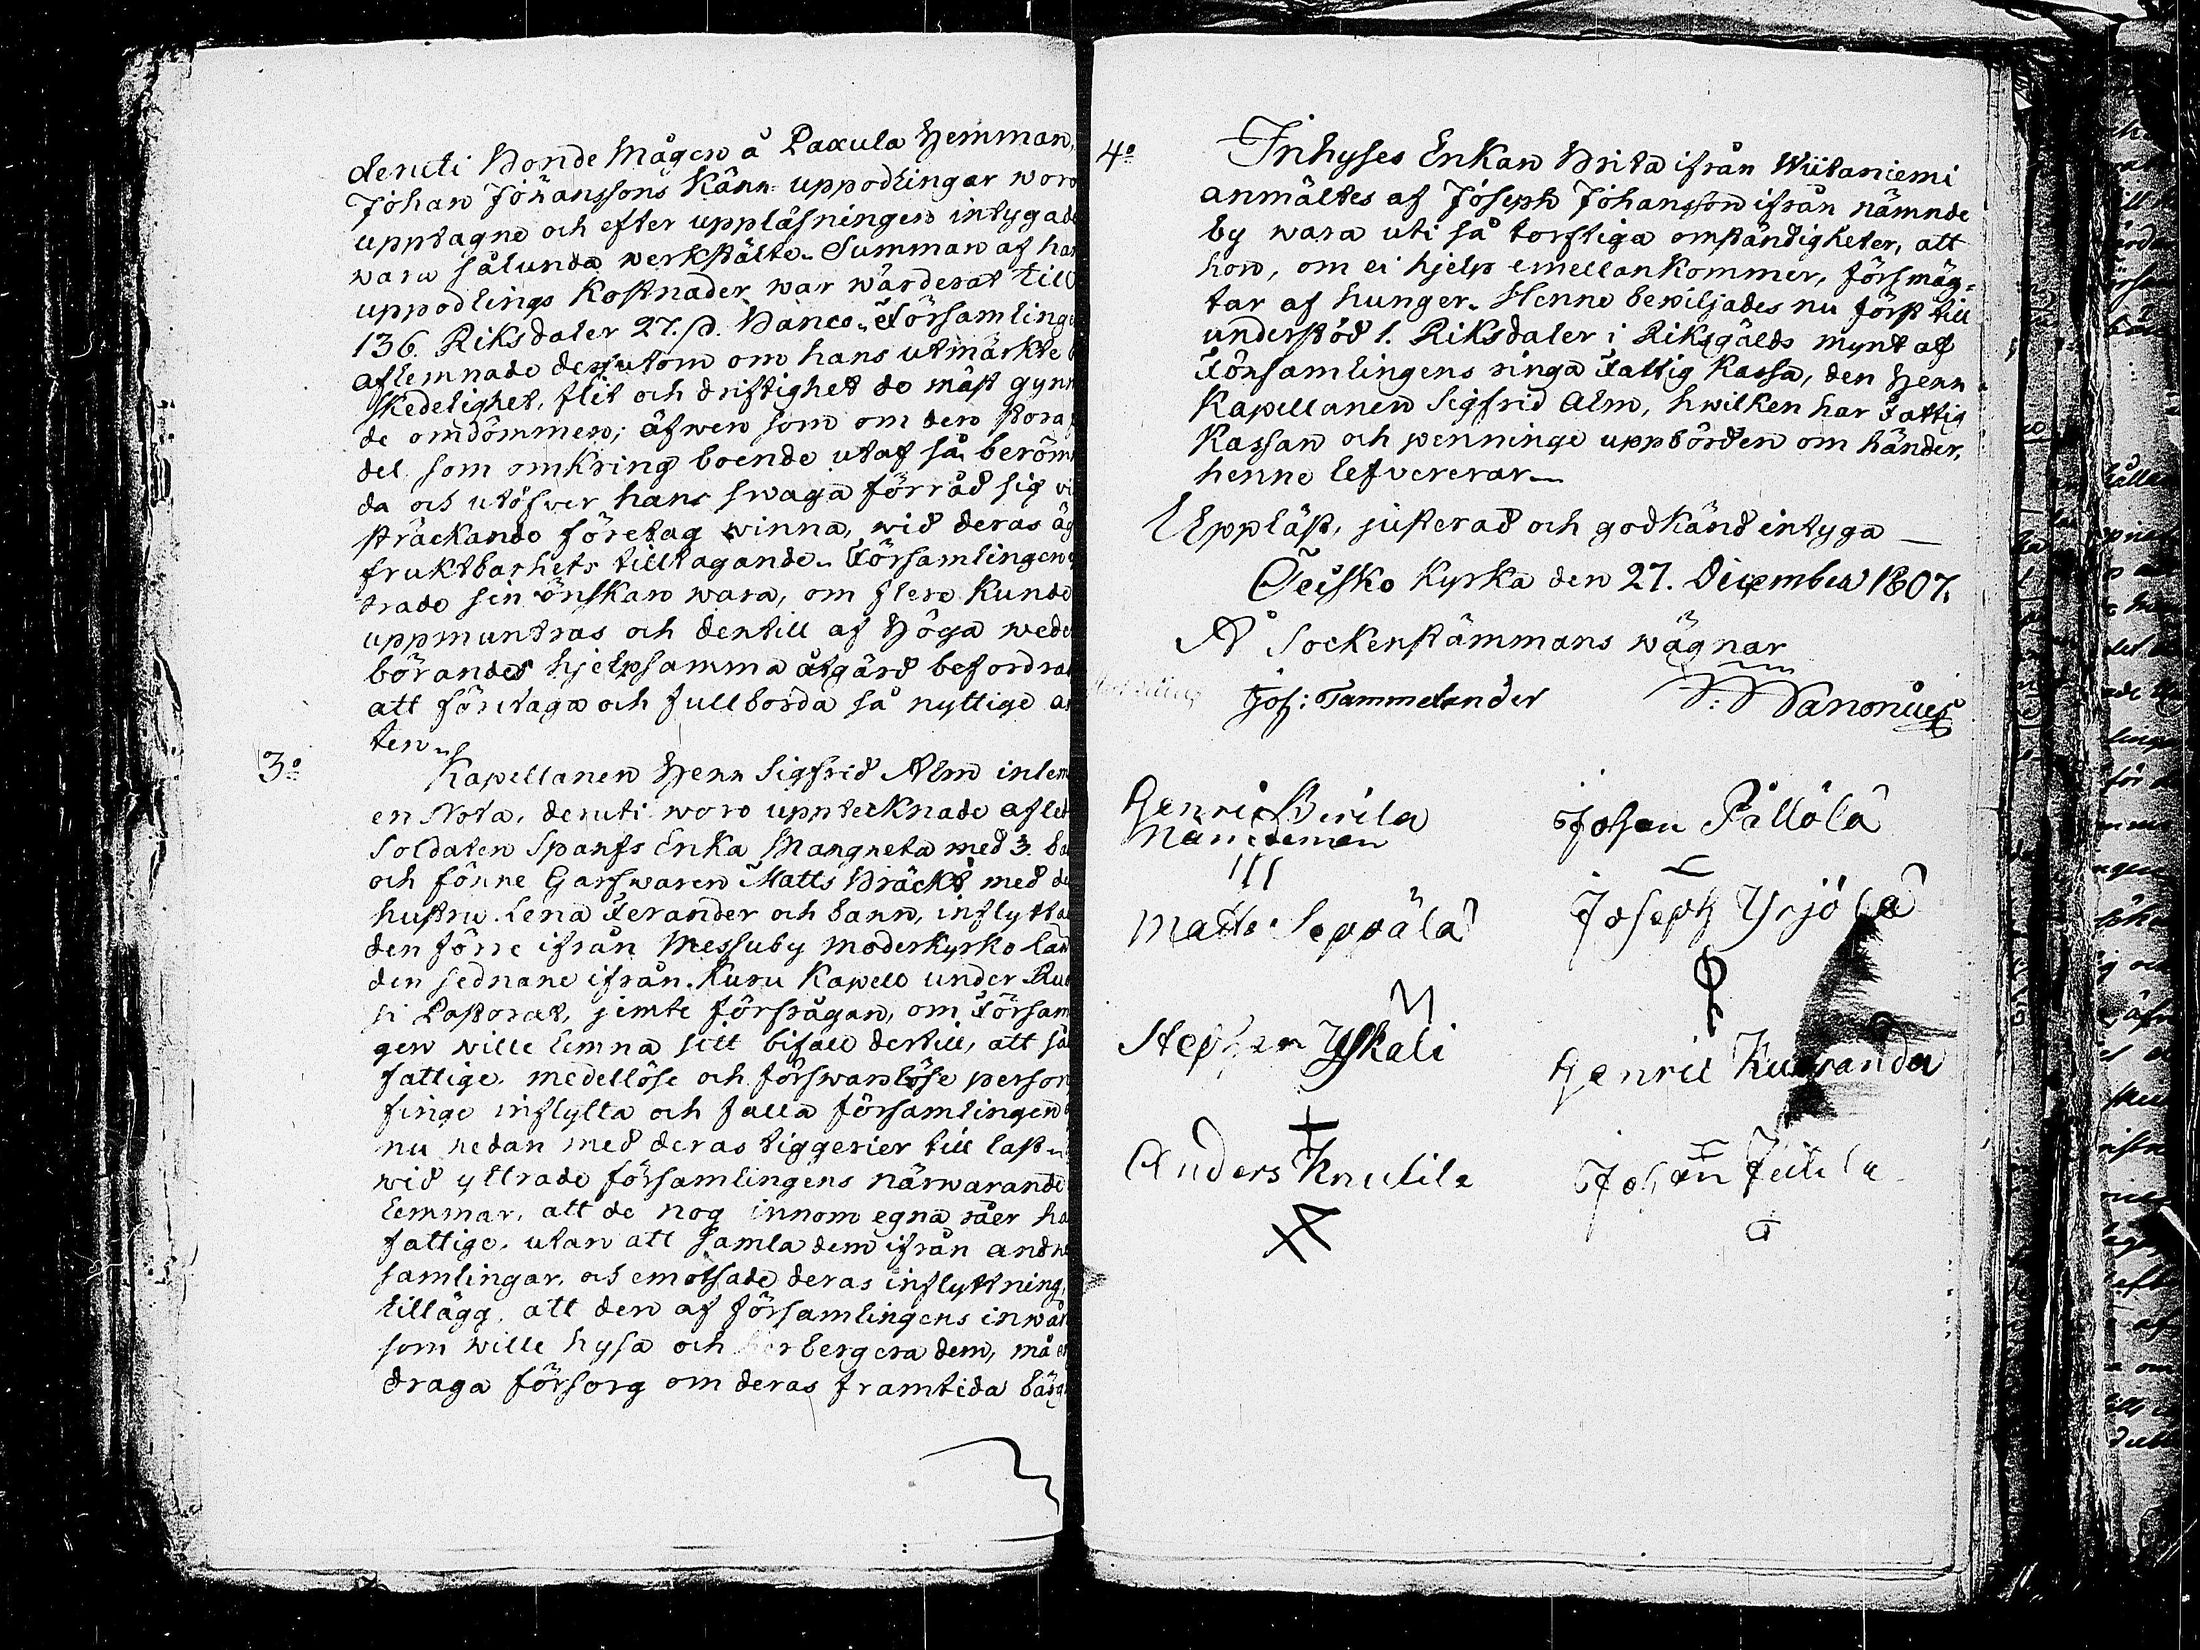 deruti Bonde Mågen å Paxula Hemman,
Johan Johanssons Kärr-uppodlingar woro
upptagne och efter uppläsningen intygade
wara sålunda werkstälte. Summan af hans
uppodlings Kostnader war wärderat till
136. Riksdaler 27. s. Banco. Församlinge
aflemnade dessutom om hans utmärkte
skedelighet, flit och driftighet de mäst gynn
de omdömmen; äfwen som om den stora
del som omkring boende utaf så beröm
da och utöfwer hans swaga förråd sig
sträckande företag winna, wid deras äg
fruktbarhets tilltagande. Församlingen
trade sin önskan wara, om flere Kunde
uppmuntras och dertill af Höga wede
börandes hjelpsamma åtgärd befordras
att företaga och fullborda så nyttige ar
ten.
3o Kapellanen Herr Sigfrid Alm inlem
en Nota, deruti woro upptecknade afled
Soldaten Spanfs Enka Margreta med 3. ba
och förre Garfwaren Matts Bräckt med de
hustru Lena Ferander och barn, inflytta
den förre ifrån Messuby moderkyrko län
den sednare ifrån Kuru Kapell under Ru
si Pastorat, jemte förfrågan, om Försam
gen wille lemna sitt bifall dertill, att så
fattige, medellöse och förswarslöse person
finge inflytta och falla församlingen
nu redan med deras tiggerier till last.
wid yttrade församlingens närwarande
lemmar, att de nog innom egna råer ha
fattige, utan att samla dem ifrån andra
samlingar, och emotsade deras inflyttning,
tillägg, att den af församlingens inwån
som wille hysa och herbergera dem, må
draga försorg om deras framtida bärg
4o Inhyses Enkan Brita ifrån Wiitaniemi
anmältes af Joseph Johansson ifrån nämnde
by wara uti så torftiga omständigheter, att
hon, om ei hjelp emellankommer, försmäg-
tar af hunger. Henne bewiljades nu först till
understöd 1. Riksdaler i Riksgälds mynt af
Församlingens ringa Fattig Kassa, den Herr
Kapellanen Sigfrid Alm, hwilken har Fattig
Kassan och penninge uppbörden om händer,
henne lefvererar.
Uppläst, justerad och godkänd intyga
Teisko Kyrka den 27. December 1807.
Å Sockenstämmans wägnar
Joh: Tammelander
Henric Birila
Nämdeman
Johan Pållölä
Matts Seppälä
Joseph Yrjölä
Stephan Yskali
Henric Kuoranda
Anders Knutila
Johan Juttila